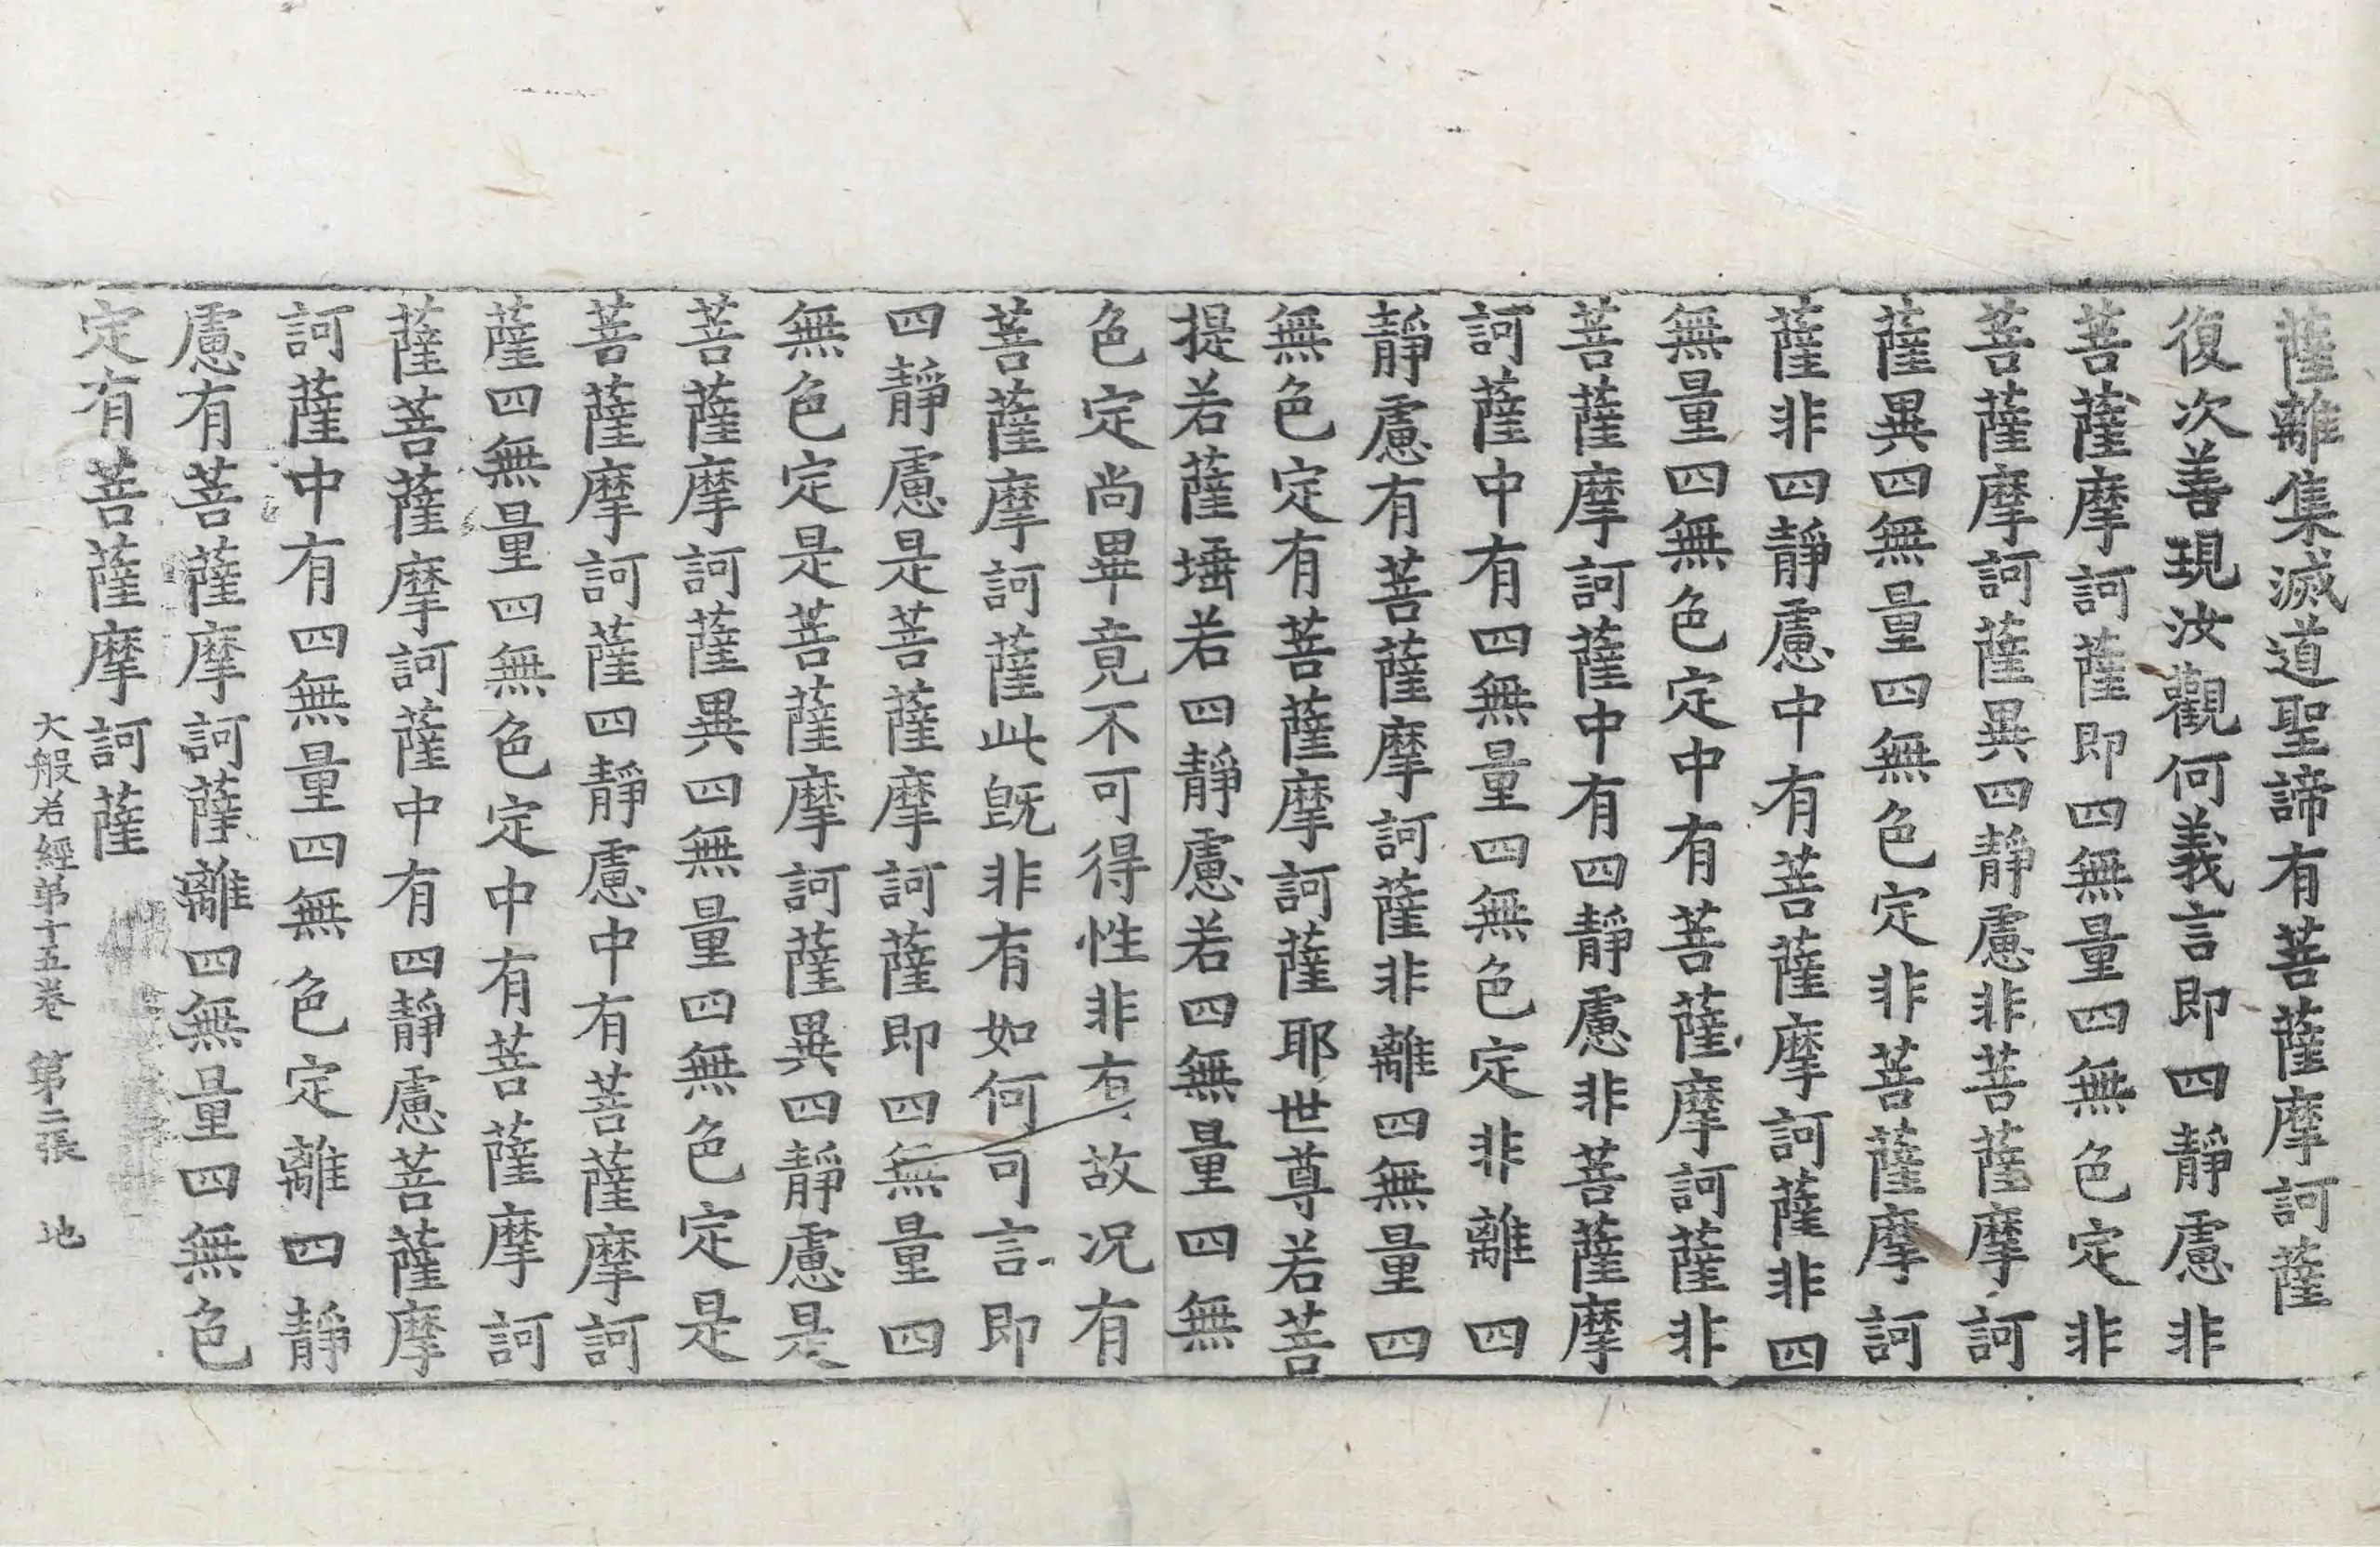 薩離集滅道聖諦有菩薩摩訶薩
復次善現汝觀何義言即四靜慮非
菩薩摩訶薩即四無量四無色定非
菩薩摩訶薩異四靜慮非菩薩摩訶
薩異四無量四無色定非菩薩摩訶
薩非四靜慮中有菩薩摩訶薩非四
無量四無色定中有菩薩摩訶薩非
菩薩摩訶薩中有四靜慮非菩薩摩
訶薩中有四無量四無色定非離四
靜慮有菩薩摩訶薩非離四無量四
無色定有菩薩摩訶薩耶世尊若菩
提若薩埵若四靜慮若四無量四無
色定尚畢竟不可得性非有故況有
菩薩摩訶薩此既非有如何可言即
四靜慮是菩薩摩訶薩即四無量四
無色定是菩薩摩訶薩異四靜慮是
菩薩摩訶薩異四無量四無色定是
菩薩摩訶薩四靜慮中有菩薩摩訶
薩四無量四無色定中有菩薩摩訶
薩菩薩摩訶薩中有四靜慮菩薩摩
訶薩中有四無量四無色定離四靜
慮有菩薩摩訶薩離四無量四無色
定有菩薩摩訶薩
大般若經第十五卷 第二張 地